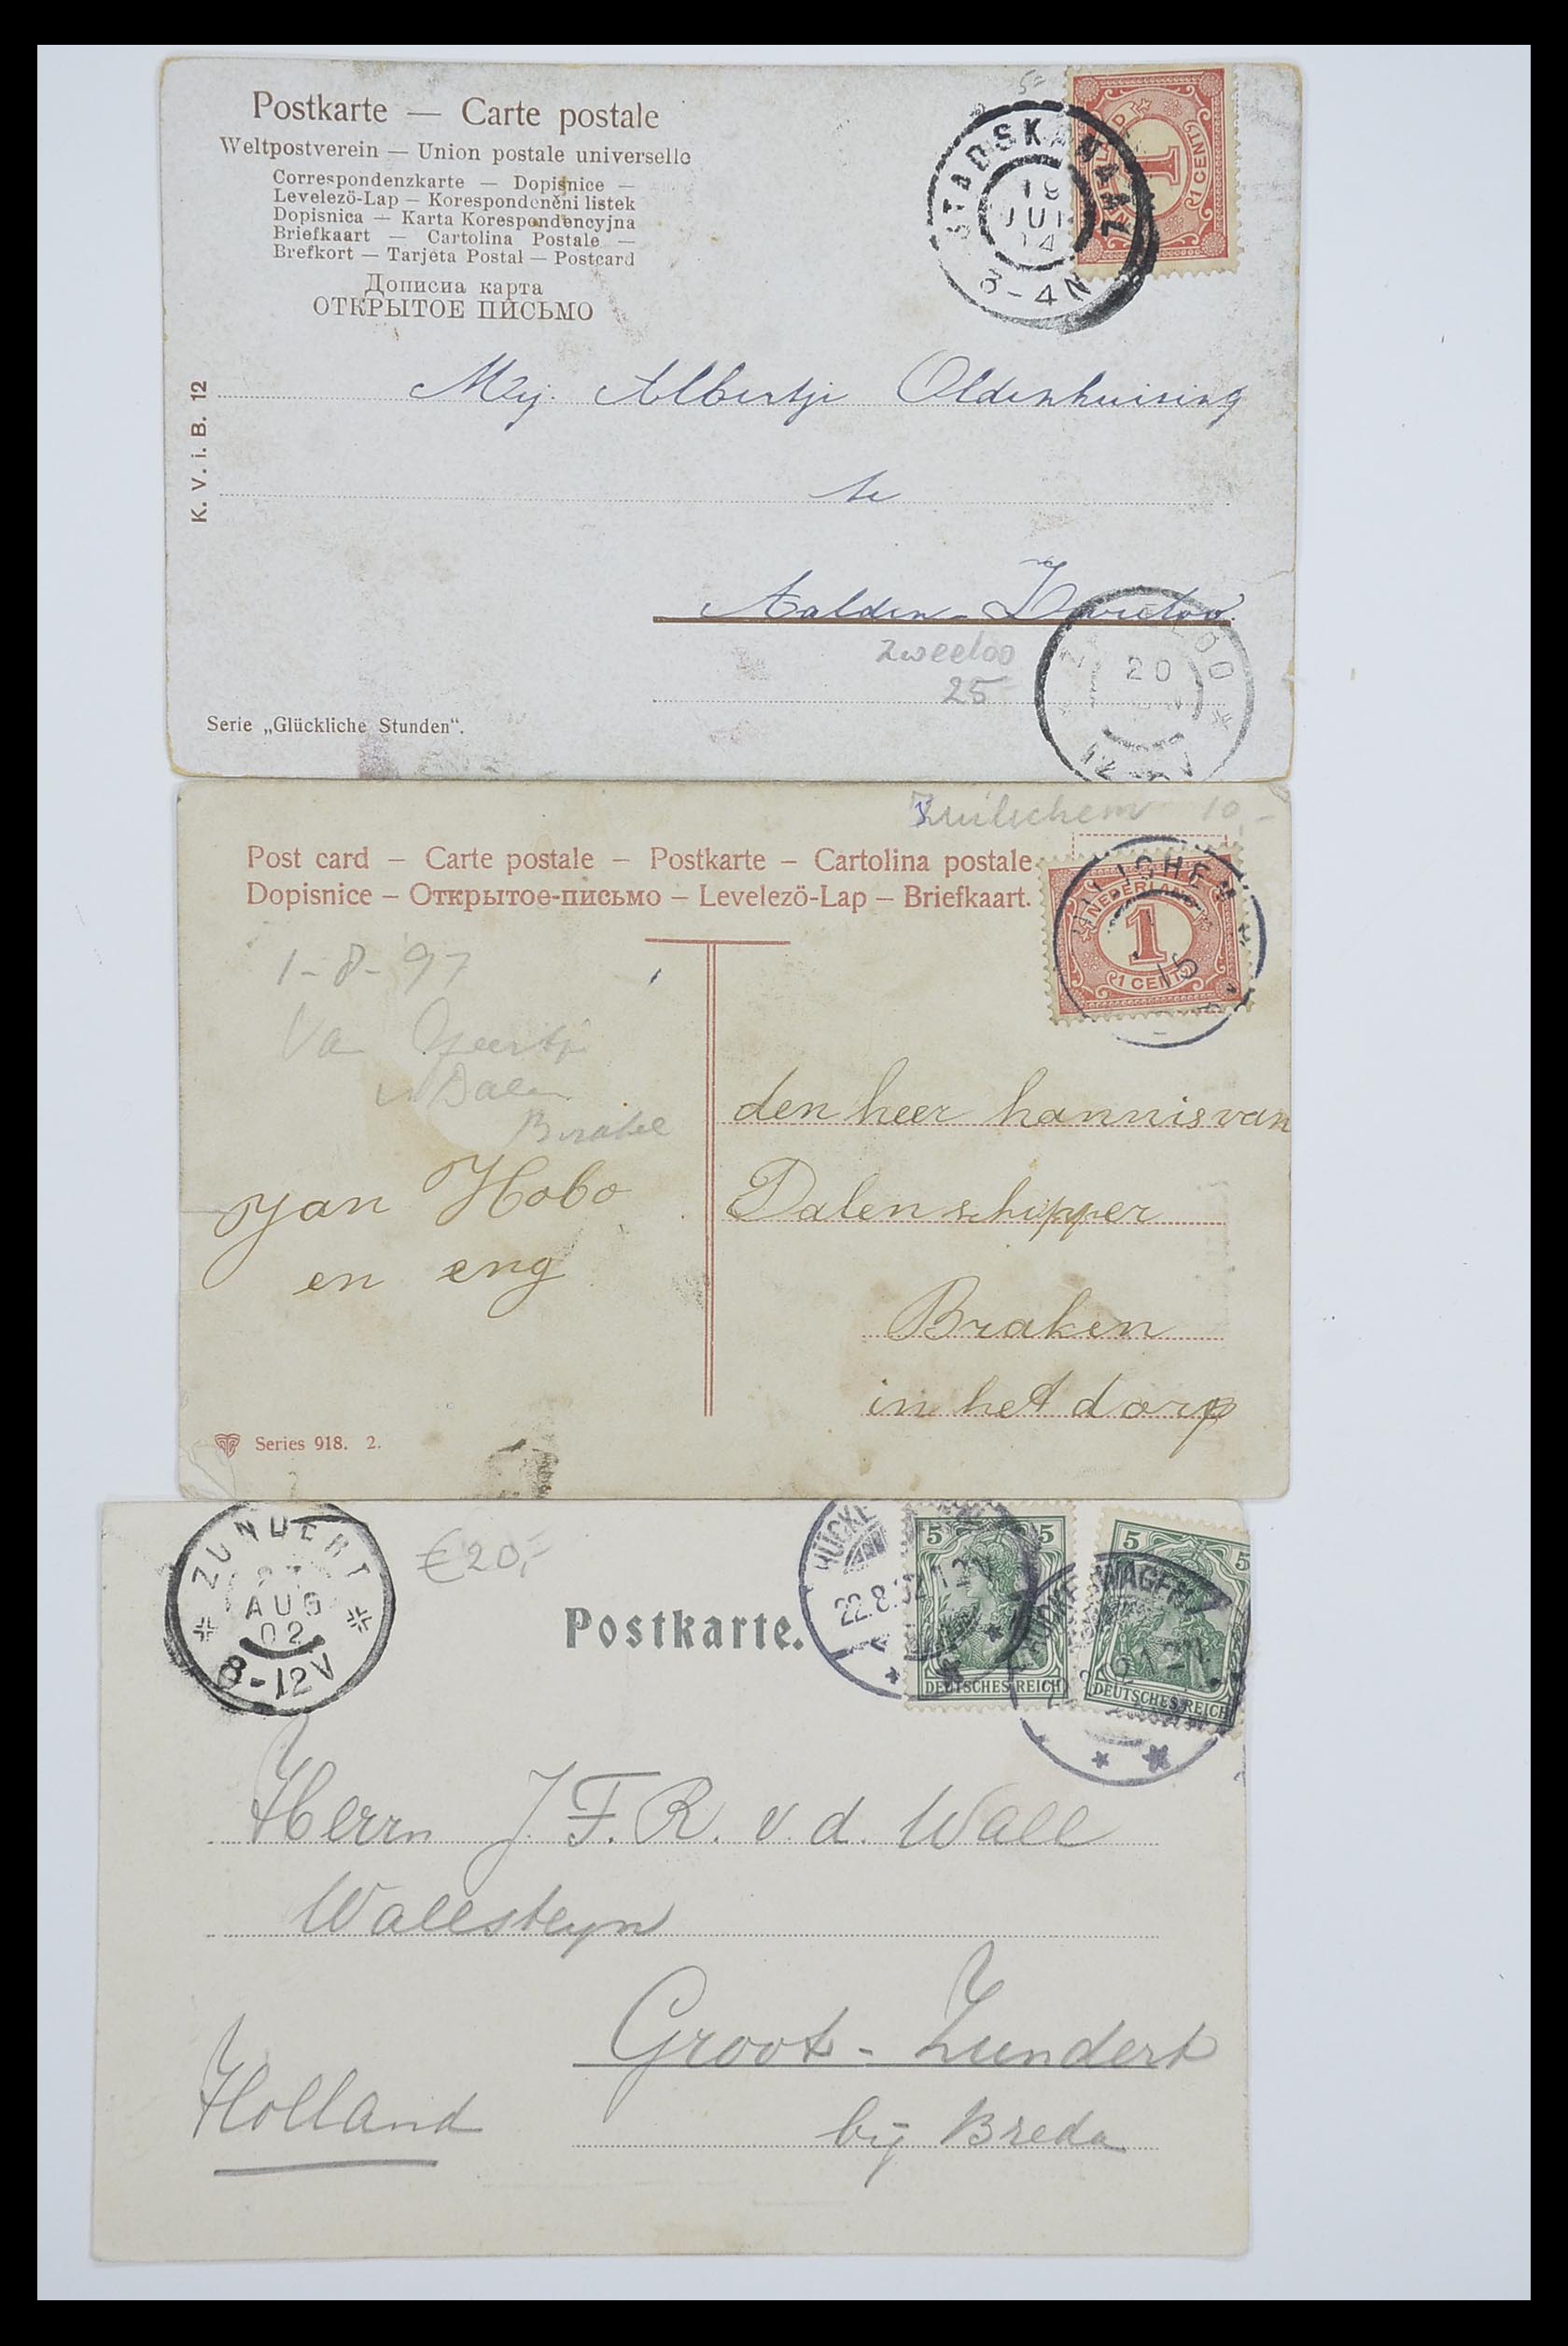 Postkarte — Carte postale
Weltpostverein — Union postale universelle
Correspondenzkarte — Dopisnice —
Levelező-Lap — Korespondenční listek
Dopisnica — Karta Korespondencyjna
Briefkaart — Cartolina Postale —
Brefkort — Tarjeta Postal — Postcard
Дописна карта
ОТКРЫТОЕ ПИСЬМО
STADSKANAAL
18
JUL
04
3-4N
1
1 CENT
K. V. i. B. 12
Mej. Albertje Oldenhuising
te
Aalden-Zweeloo
Zweeloo
25
20
Serie „Glückliche Stunden“.
Zuilichem 10,-
Post card – Carte postale – Postkarte – Cartolina postale
Dopisnice – Открытое-письмо – Levelező-Lap – Briefkaart.
NEDERLAND
1
1 CENT
15
1-8-97
Van Geertje
v Dalen
Brakel
den heer hannis van
Dalen schipper
Braken
in het dorp
Jan Hobo
en eng
Series 918. 2.
ZUNDERT
AUG
02
8-12V
€20,-
Postkarte.
5 5
DEUTSCHES REICH
5 5
DEUTSCHES REICH
Herrn J. F. R. v. d. Wall
Wallsteyn
Groot-Zundert
Holland
bij Breda